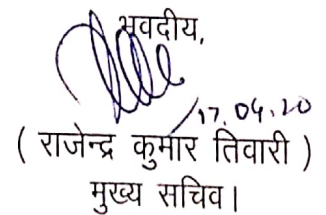 भवदीय,
17.04.20
( राजेन्द्र कुमार तिवारी )
मुख्य सचिव।